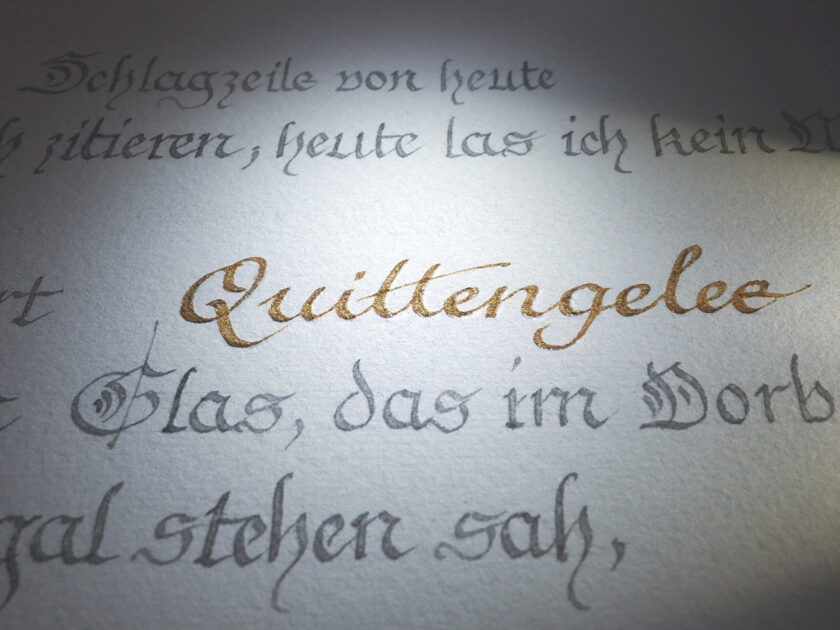 Schlagzeile von heute
zitieren, heute las ich kein
Quittengelee
Glas, das im
stehen sah,